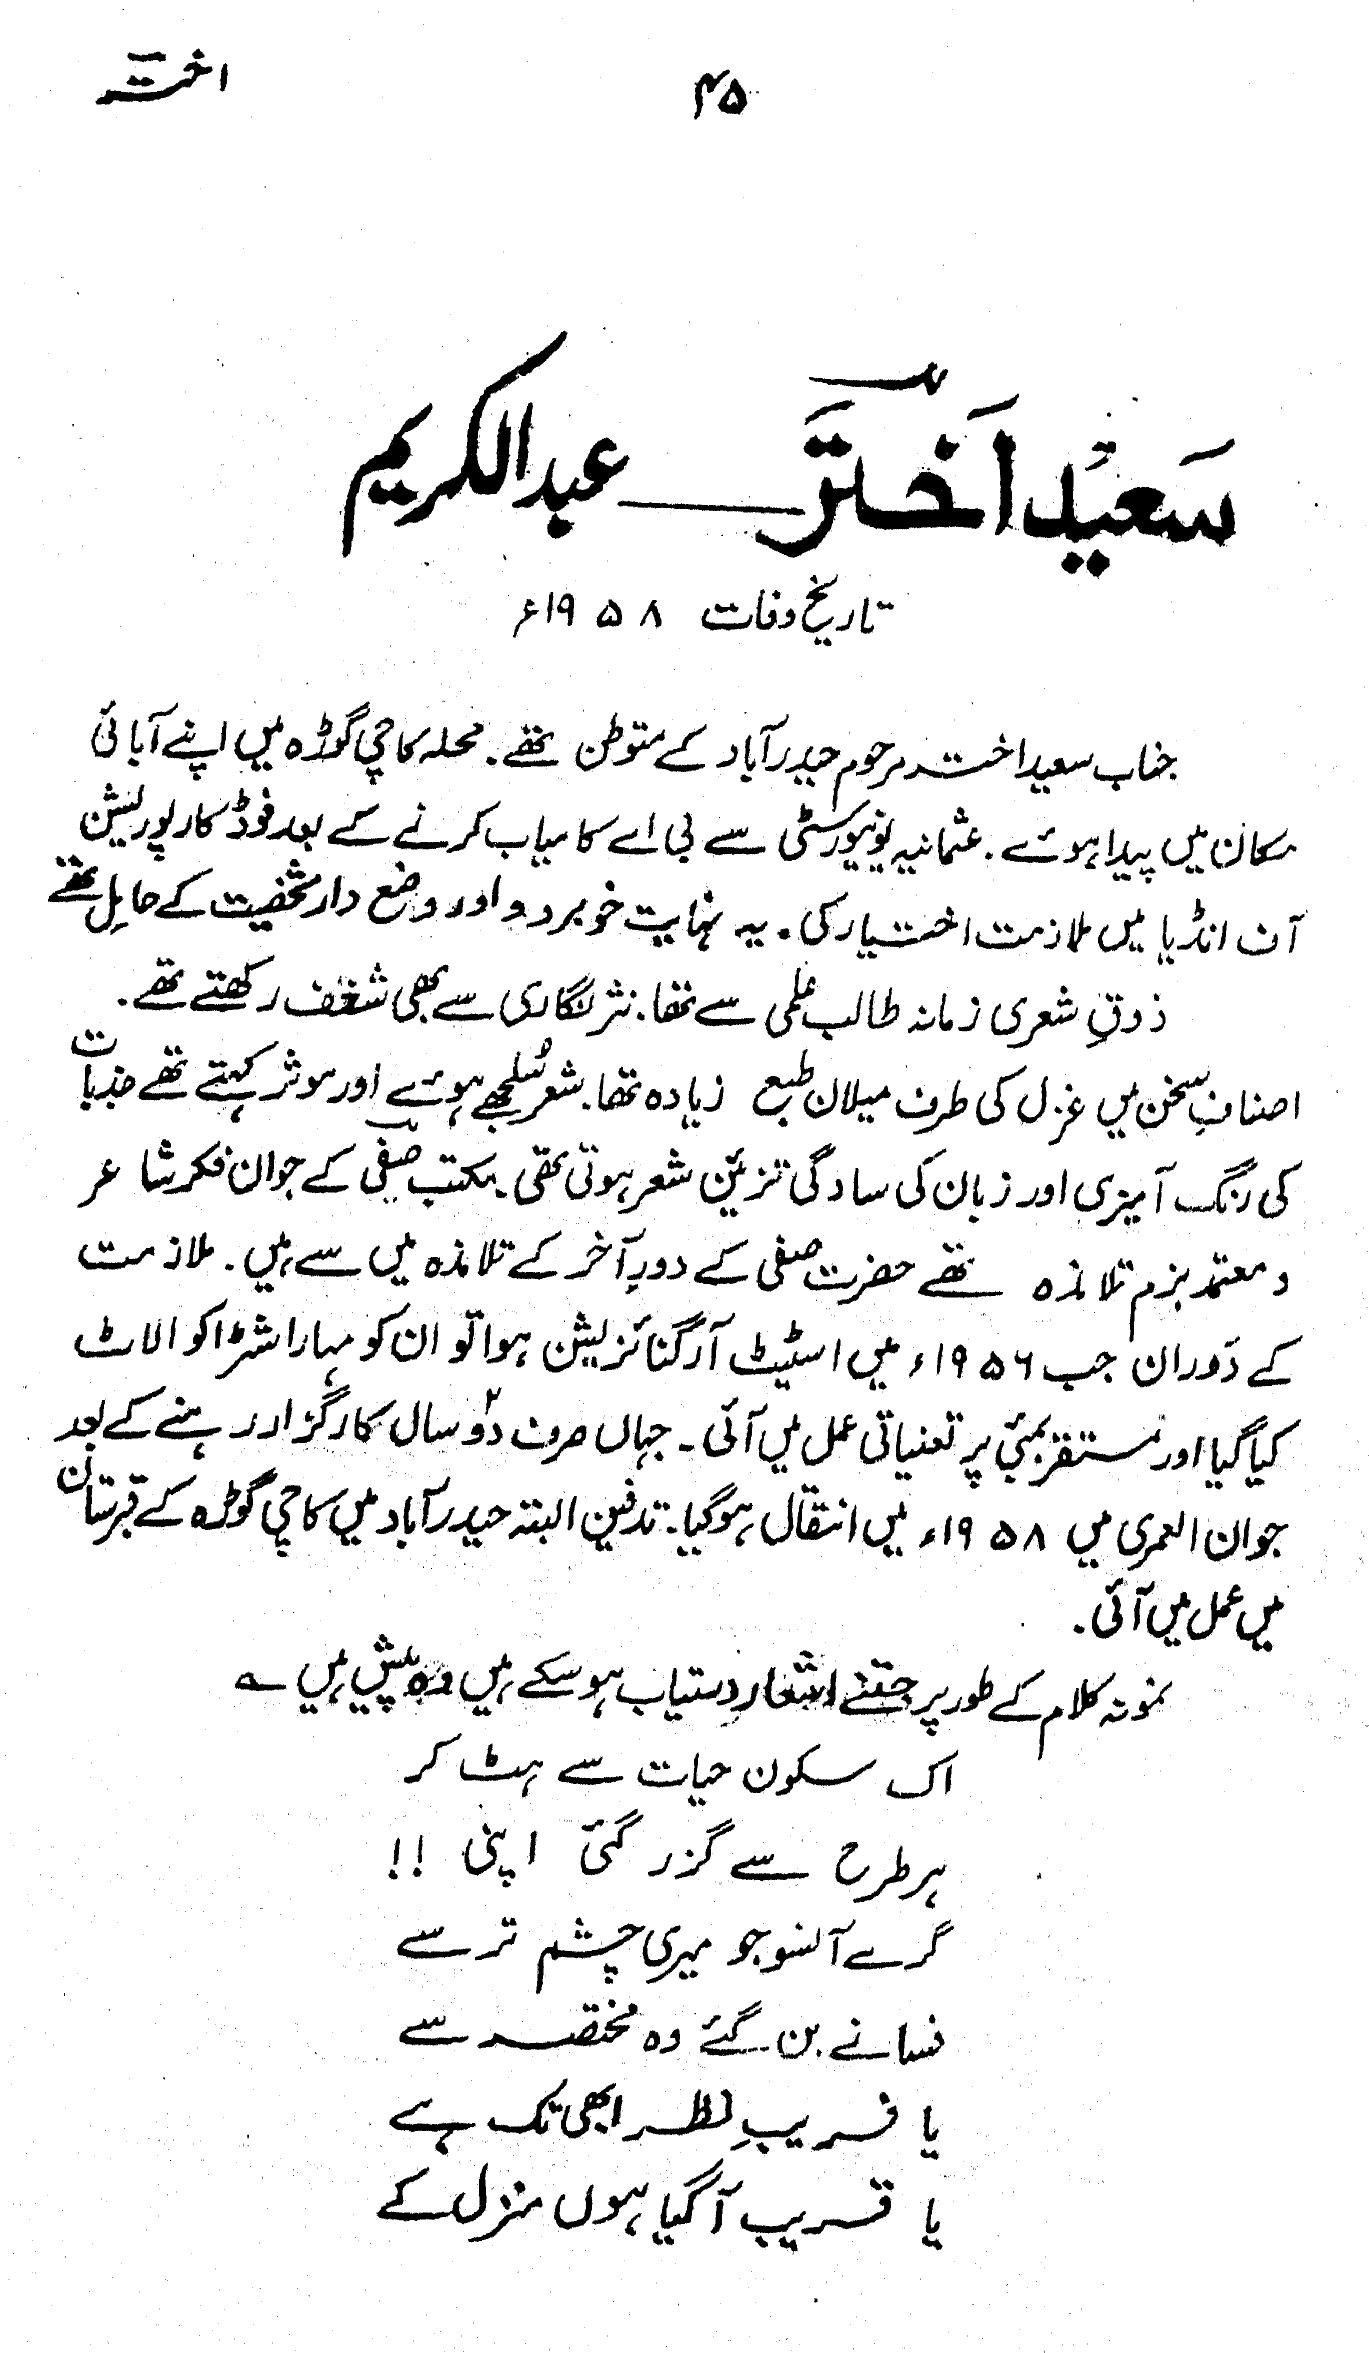 ۴۵
اختر
سعید اختر — عبدالکریم
تاریخ وفات ۱۹۵۸ء
جناب سعید اختر مرحوم حیدرآباد کے متوطن تھے۔ محلہ کاچی گوڑہ میں اپنے آبائی
مکان میں پیدا ہوئے۔ عثمانیہ یونیورسٹی سے بی اے کامیاب کرنے کے بعد فوڈ کارپوریشن
آف انڈیا میں ملازمت اختیار کی۔ یہ نہایت خوبرو اور وضع دار شخصیت کے حامل تھے
ذوقِ شعری زمانہ طالب علمی سے تھا۔ نثر نگاری سے بھی شغف رکھتے تھے۔
اصنافِ سخن میں غزل کی طرف میلان طبع زیادہ تھا۔ شعر سُلجھے ہوئے اور موثر کہتے تھے جذبات
کی رنگ آمیزی اور زبان کی سادگی تزئین شعر ہوتی تھی۔ مکتب صفی کے جوان فکر شاعر
و معتمد بزم تلامذہ تھے حضرت صفی کے دورِ آخر کے تلامذہ میں سے ہیں۔ ملازمت
کے دَوران جب ۱۹۵۶ء میں اسٹیٹ آرگنائزیشن ہوا تو ان کو مہاراشٹرا کو الاٹ
کیا گیا اور مستقر بمبئی پر تعنیاتی عمل میں آئی۔ جہاں صرف دو۲ سال کارگزار رہنے کے بعد
جوان العمری میں ۱۹۵۸ء میں انتقال ہوگیا۔ تدفین البتہ حیدرآباد میں کاچی گوڑہ کے قبرستان
میں عمل میں آئی۔
نمونہ کلام کے طور پر جتنے اشعار دستیاب ہوسکے ہیں وہ پیش ہیں ؎
اک سکون حیات سے ہٹ کر
ہر طرح سے گزر گئی اپنی !!
گرے آنسو جو میری چشم تر سے
فسانے بن گئے وہ مختصر سے
یا فریبِ نظر ابھی تک ہے
یا قریب آگیا ہوں منزل کے